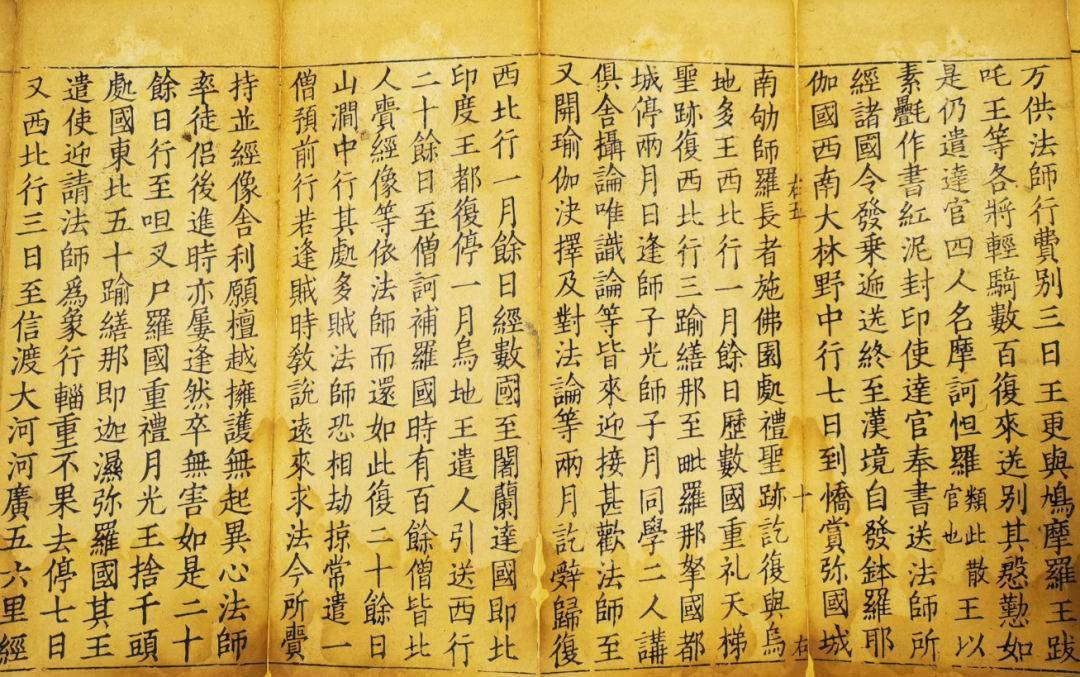 万供法師行費別三日王更與鳩摩羅王跋
吒王等各將輕騎數百復來送別其慇懃如
是仍遣達官四人名摩訶怛羅類此散官也王以
素氎作書紅泥封印使達官奉書送法師所
經諸國令發乗逓送終至漢境自發鉢羅耶
伽國西南大林野中行七日到憍賞弥國城
右五 十 右
南劬師羅長者施佛園處禮聖跡訖復與烏
地多王西北行一月餘日歷數國重礼天梯
聖跡復西北行三踰繕那至毗羅那拏國都
城停兩月日逢師子光師子月同學二人講
俱舍攝論唯識論等皆來迎接甚歡法師至
又開瑜伽決擇及對法論等兩月訖辤歸復
西北行一月餘日經數國至闍蘭達國即北
印度王都復停一月烏地王遣人引送西行
二十餘日至僧訶補羅國時有百餘僧皆北
人賷經像等依法師而還如此復二十餘日
山澗中行其處多賊法師恐相劫掠常遣一
僧預前行若逢賊時教說遠來求法今所賷
持並經像舍利願檀越擁護無起異心法師
率徒侶後進時亦屢逢然卒無害如是二十
餘日行至呾叉尸羅國重禮月光王捨千頭
處國東北五十踰繕那即迦濕弥羅國其王
遣使迎請法師為象行輜重不果去停七日
又西北行三日至信渡大河河廣五六里經